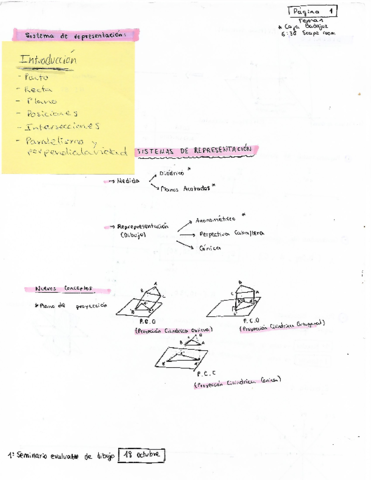 Página 1
Sistema de representación:
* Caja Badajoz
6:30 Scape room
Introducción
- Punto
- Recta
- Plano
- Posiciones
- Intersecciones
- Paralelismo y
perpendicularidad
SISTEMAS DE REPRESENTACIÓN
→ Medida
Diédrico *
Planos Acotados *
→ Representación
(Dibujo)
Axonométrico *
Perspectiva Caballera
Cónica
Nuevos Conceptos.
* Plano de proyección
P.C.O
(Proyección Cilíndrica Oblicua)
P.C.O
(Proyección Cilíndrica Ortogonal)
P.C.C
(Proyección Cilíndrica Cónica)
1º Seminario evaluador de dibujo 18 octubre